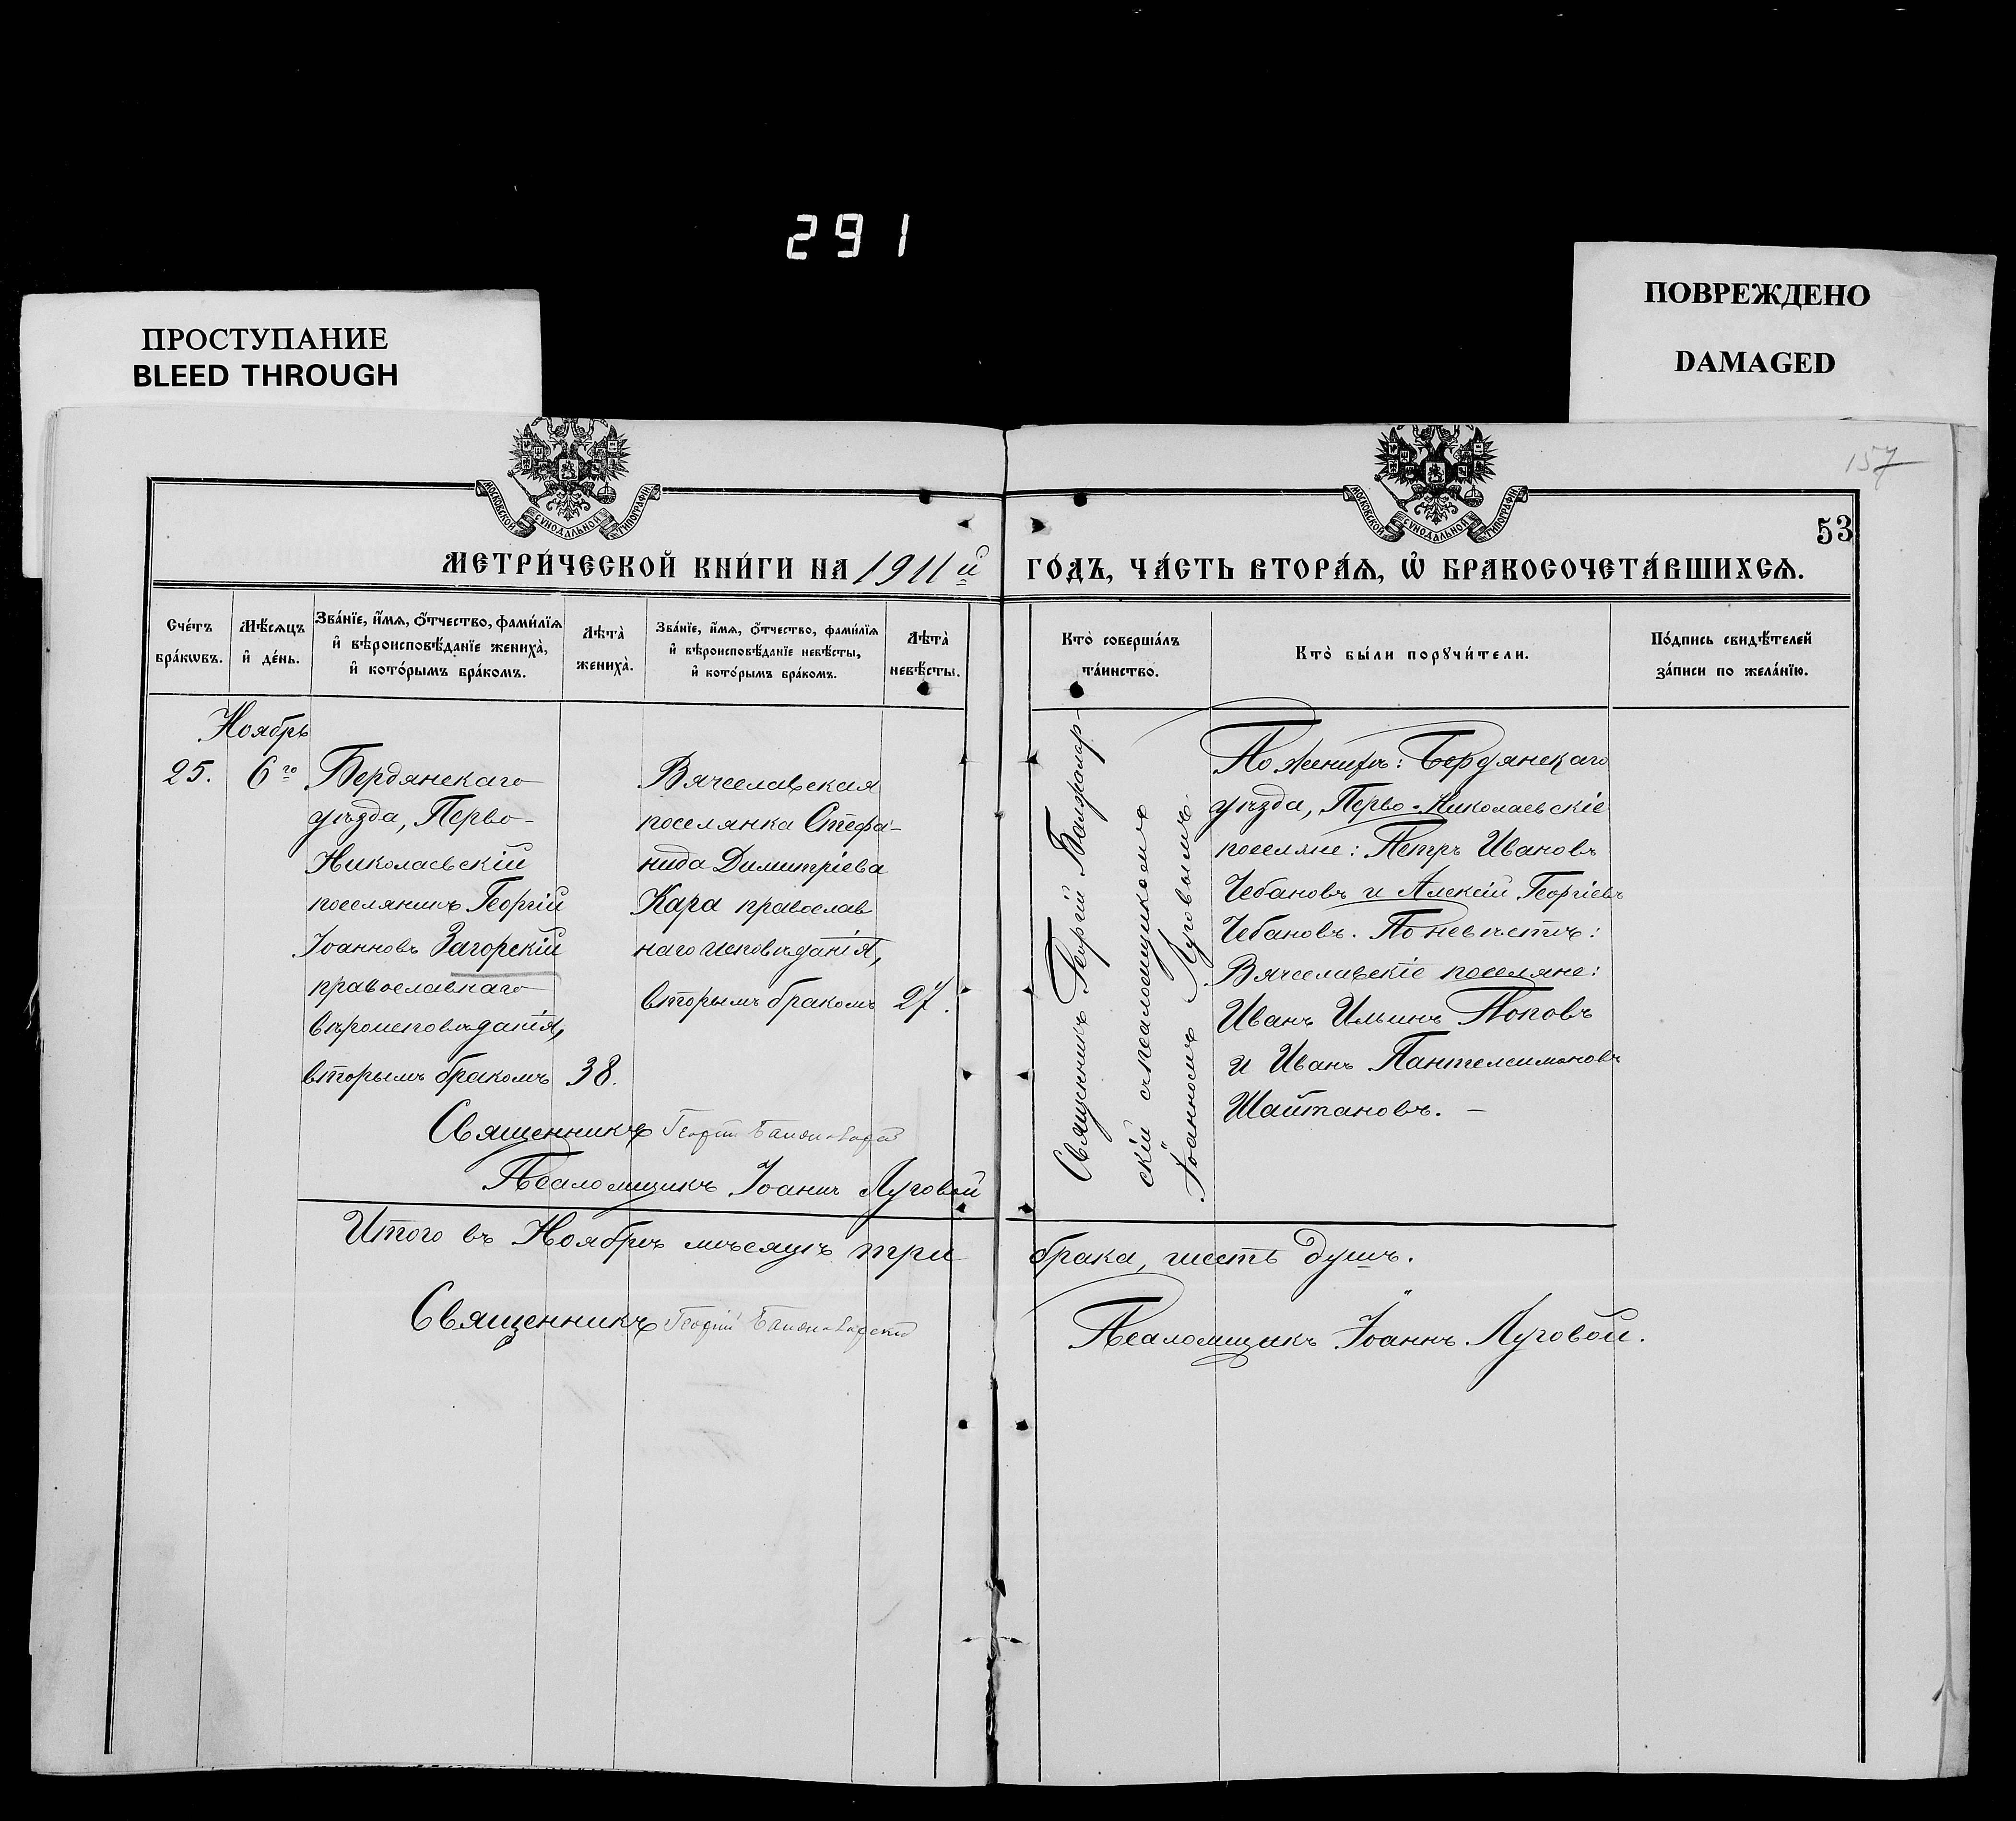 291
ПРОСТУПАНИЕ
BLEED THROUGH
ПОВРЕЖДЕНО
DAMAGED
157
53
МОСКОВСКОЙ СУНОДАЛЬНОЙ ТИПОГРАФІИ
МОСКОВСКОЙ СУНОДАЛЬНОЙ ТИПОГРАФІИ
МЕТРИ́ЧЕСКОЙ КНИ́ГИ НА 1911й ГО́ДЪ, ЧА́СТЬ ВТОРА́Ѧ, Ѡ҆ БРАКОСОЧЕТА́ВШИХСѦ.
Сче́тъ
бра́кѡвъ.
Мѣ́сѧцъ
и҆ де́нь.
Зва́нїе, и҆́мѧ, ѻ҆́тчество, фами́лїѧ
и҆ вѣроисповѣ́данїе жениха̀,
и҆ кото́рымъ бра́комъ.
Лѣта̀
жениха̀.
Зва́нїе, и҆́мѧ, ѻ҆́тчество, фами́лїѧ
и҆ вѣроисповѣ́данїе невѣ́сты,
и҆ кото́рымъ бра́комъ.
Лѣта̀
невѣ́сты.
Кто̀ соверша́лъ
та́инство.
Кто̀ бы́ли порꙋчи́тели.
По́дпись свидѣ́телей
за́писи по жела́нїю.
Ноябрь
25.
6го
Бердянскаго
уѣзда, Перво-
Николаевскій
поселянинъ Георгій
Іоанновъ Загорскій
православнаго
вѣроисповѣданія,
вторымъ бракомъ
38.
Вячеславская
поселянка Стефа-
нида Димитріева
Кара православ
наго исповѣданія,
вторымъ бракомъ
27.
Священникъ Георгій
скій съ псаломщикомъ
Іоанномъ Луговымъ.
По женихѣ: Бердянскаго
уѣзда, Перво-Николаевскіе
поселяне: Петръ Ивановъ
Чебановъ и Алексій Георгіевъ
Чебановъ. По невѣстѣ:
Вячеславскіе поселяне:
Иванъ Ильинъ Поповъ
и Иванъ Пантелеимоновъ
Шайтановъ. –
Священникъ Георгій
Псаломщикъ Іоаннъ Луговой
Итого въ Ноябрѣ мѣсяцѣ три брака, шесть душъ.
Священникъ Георгій
Псаломщикъ Іоаннъ Луговой.